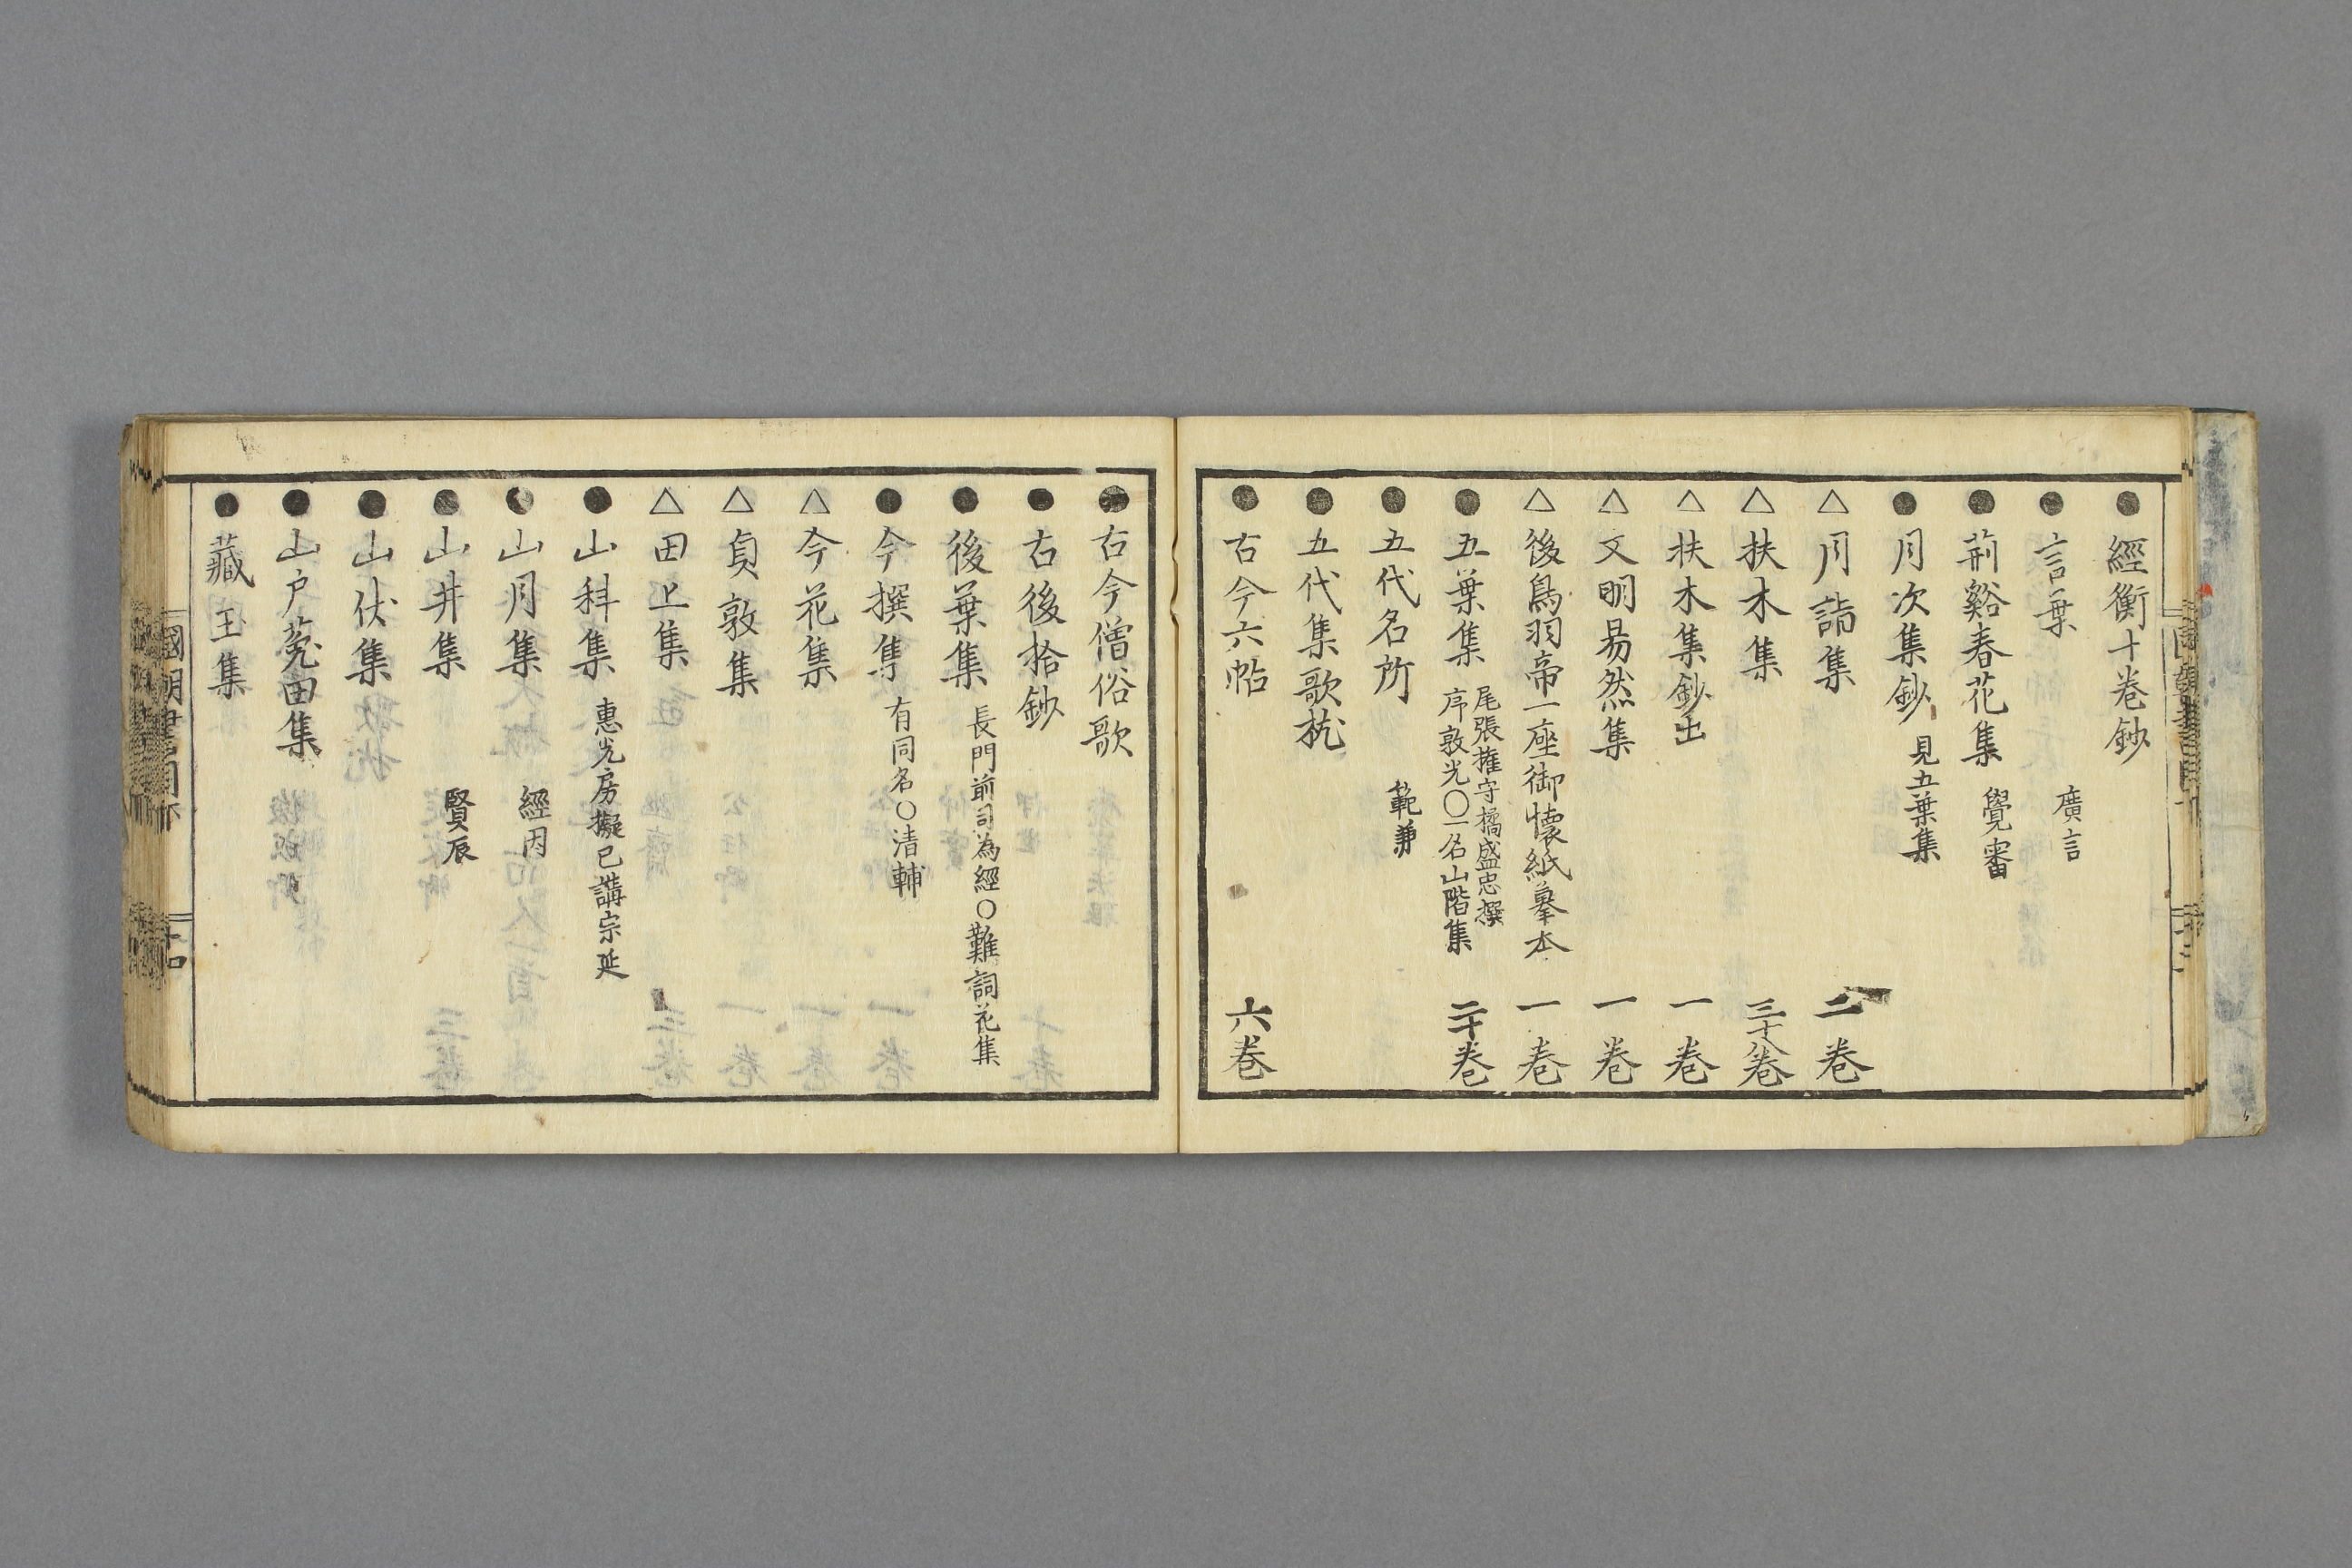 ●經衡十巻鈔
●言葉 廣言
●荊谿春花集 覺審
●月次集鈔 見五葉集
△月詣集 二巻
△扶木集 三十八巻
△扶木集鈔出 一巻
△文明易然集 一巻
△後鳥羽帝一座御懐紙摹本 一巻
●五葉集 尾張權守橘盛忠撰
序敦光〇一名山階集 二十巻
●五代名所 範兼
●五代集歌枕
●古今六帖 六巻
●古今僧俗歌
●古後拾鈔
●後葉集 長門前司為經〇難詞花集
●今撰集 有同名〇清輔
△今花集
△貞敦集
△田上集
●山科集 惠光房擬已講宗延
●山月集 經因
●山井集 賢辰
●山伏集
●山戸菟田集
●藏王集